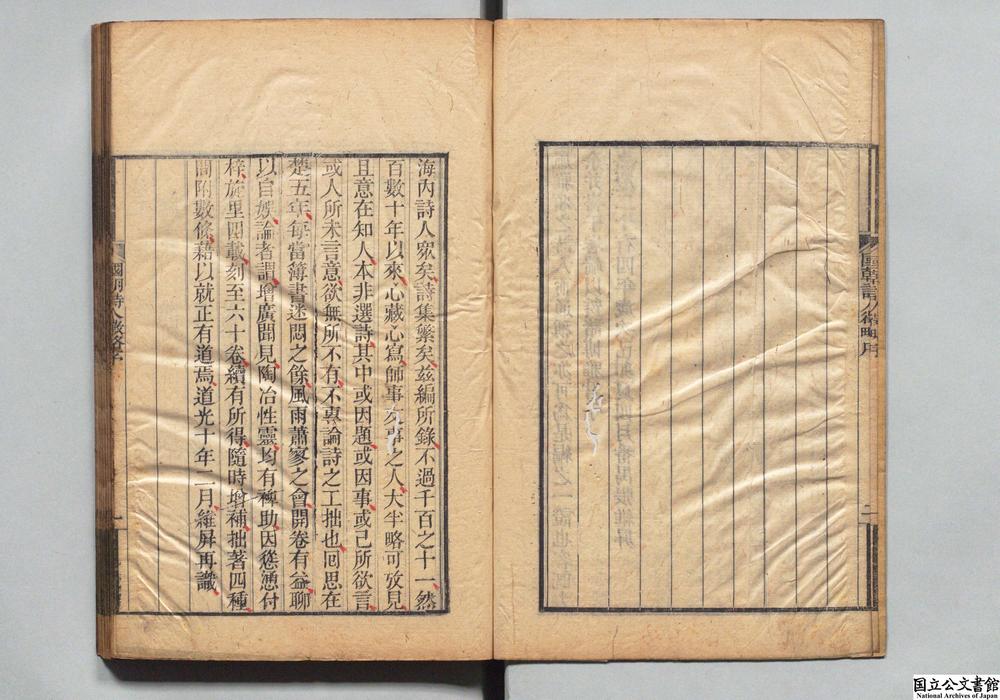 海內詩人衆矣詩集繁矣茲編所錄不過千百之十一然
百數十年以來心藏心寫師事友事之人大半略可攷見
且意在知人本非選詩其中或因題或因事或己所欲言
或人所未言意欲無所不有不專論詩之工拙也囘思在
楚五年每當簿書迷悶之餘風雨蕭寥之會開卷有益聊
以自娛論者謂增廣聞見陶冶性靈均有裨助因慫慂付
梓旋里四載刻至六十卷續有所得隨時增補拙著四種
間附數條藉以就正有道焉道光十年二月維屏再識
國朝詩人徵略序
一
國朝詩人徵略序
二
国立公文書館
National Archives of Japan